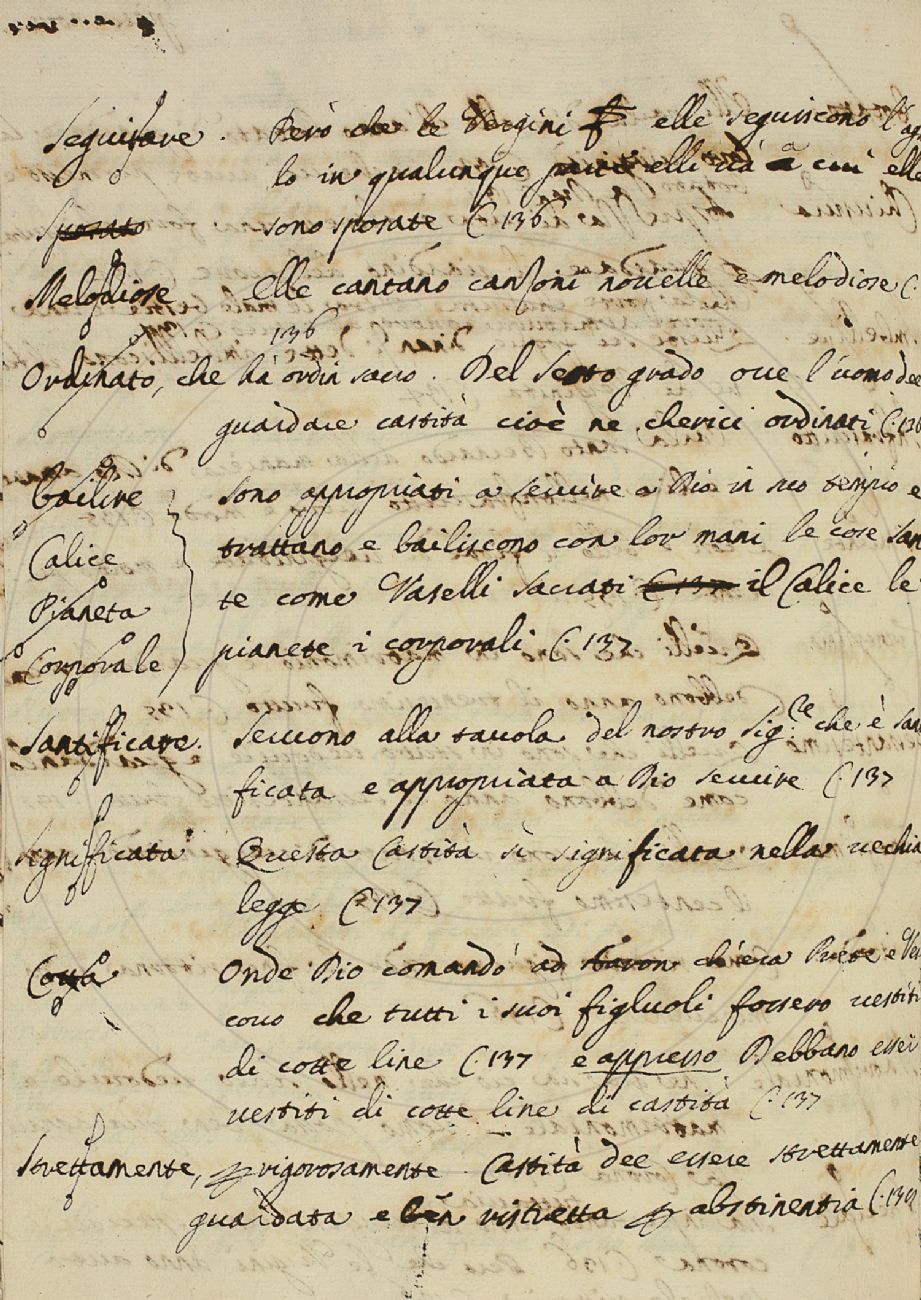 Seguitare. Però che le Vergini elle seguiscono l'ag
lo in qualunque parte elli và a cui elle
Sposato sono sposate C. 136
Melodiose Elle cantano canzoni nouelle e melodiose C.
136
Ordinato, che hà ordin sacro. Del sesto grado oue l'uomo dee
guardare castità cioè ne cherici ordinati C. 136
bailire sono appropriati a seruire a Dio in suo tempio e
Calice trattano e bailiscono con lor mani le cose san
Pianeta te come Vaselli sacrati C 137 il Calice le
Corporale pianete i corporali C. 137
Santificare. Seruono alla tauola del nostro Sig.re che è san
ficata e appropriata a Dio seruire C. 137
Significata Questa Castità è significata nella uechia
legge C. 137
Cotta Onde Dio comandò ad Aaron ch'era Prete e Ves
couo che tutti i suoi figluoli fossero uestiti
di cotte line C. 137 e appresso Debbano esser
uestiti di cotte line di castità C. 137
Strettamente, rigorosamente. Castità dee essere strettamente
guardata e ben ristretta abstinentia C.